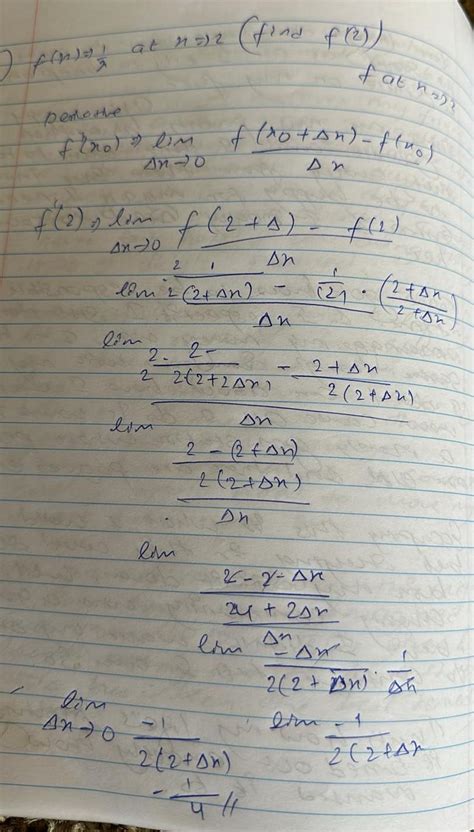 ) f(x) ⇒ 1/x at x ⇒ 2 (find f'(2))
f at x ⇒ 2
f'(x₀) ⇒ lim Δx→0 (f(x₀ + Δx) - f(x₀))/Δx
f'(2) ⇒ lim Δx→0 (f(2 + Δ) - f(2))/Δx
lim (2/2 · 1/(2+Δx) - 1/(2) · ((2+Δx)/(2+Δx)))/Δx
lim (2/2 · 2/(2(2+2Δx)) - (2+Δx)/(2(2+Δx)))/Δx
lim ((2 - (2+Δx))/(2(2+Δx)))/Δx
lim ((2 - 2 - Δx)/(4 + 2Δx))/Δx
lim -Δx/(2(2+Δx)) · 1/Δx
lim Δx→0 -1/(2(2+Δx)) lim -1/(2(2+Δx
-1/4 //